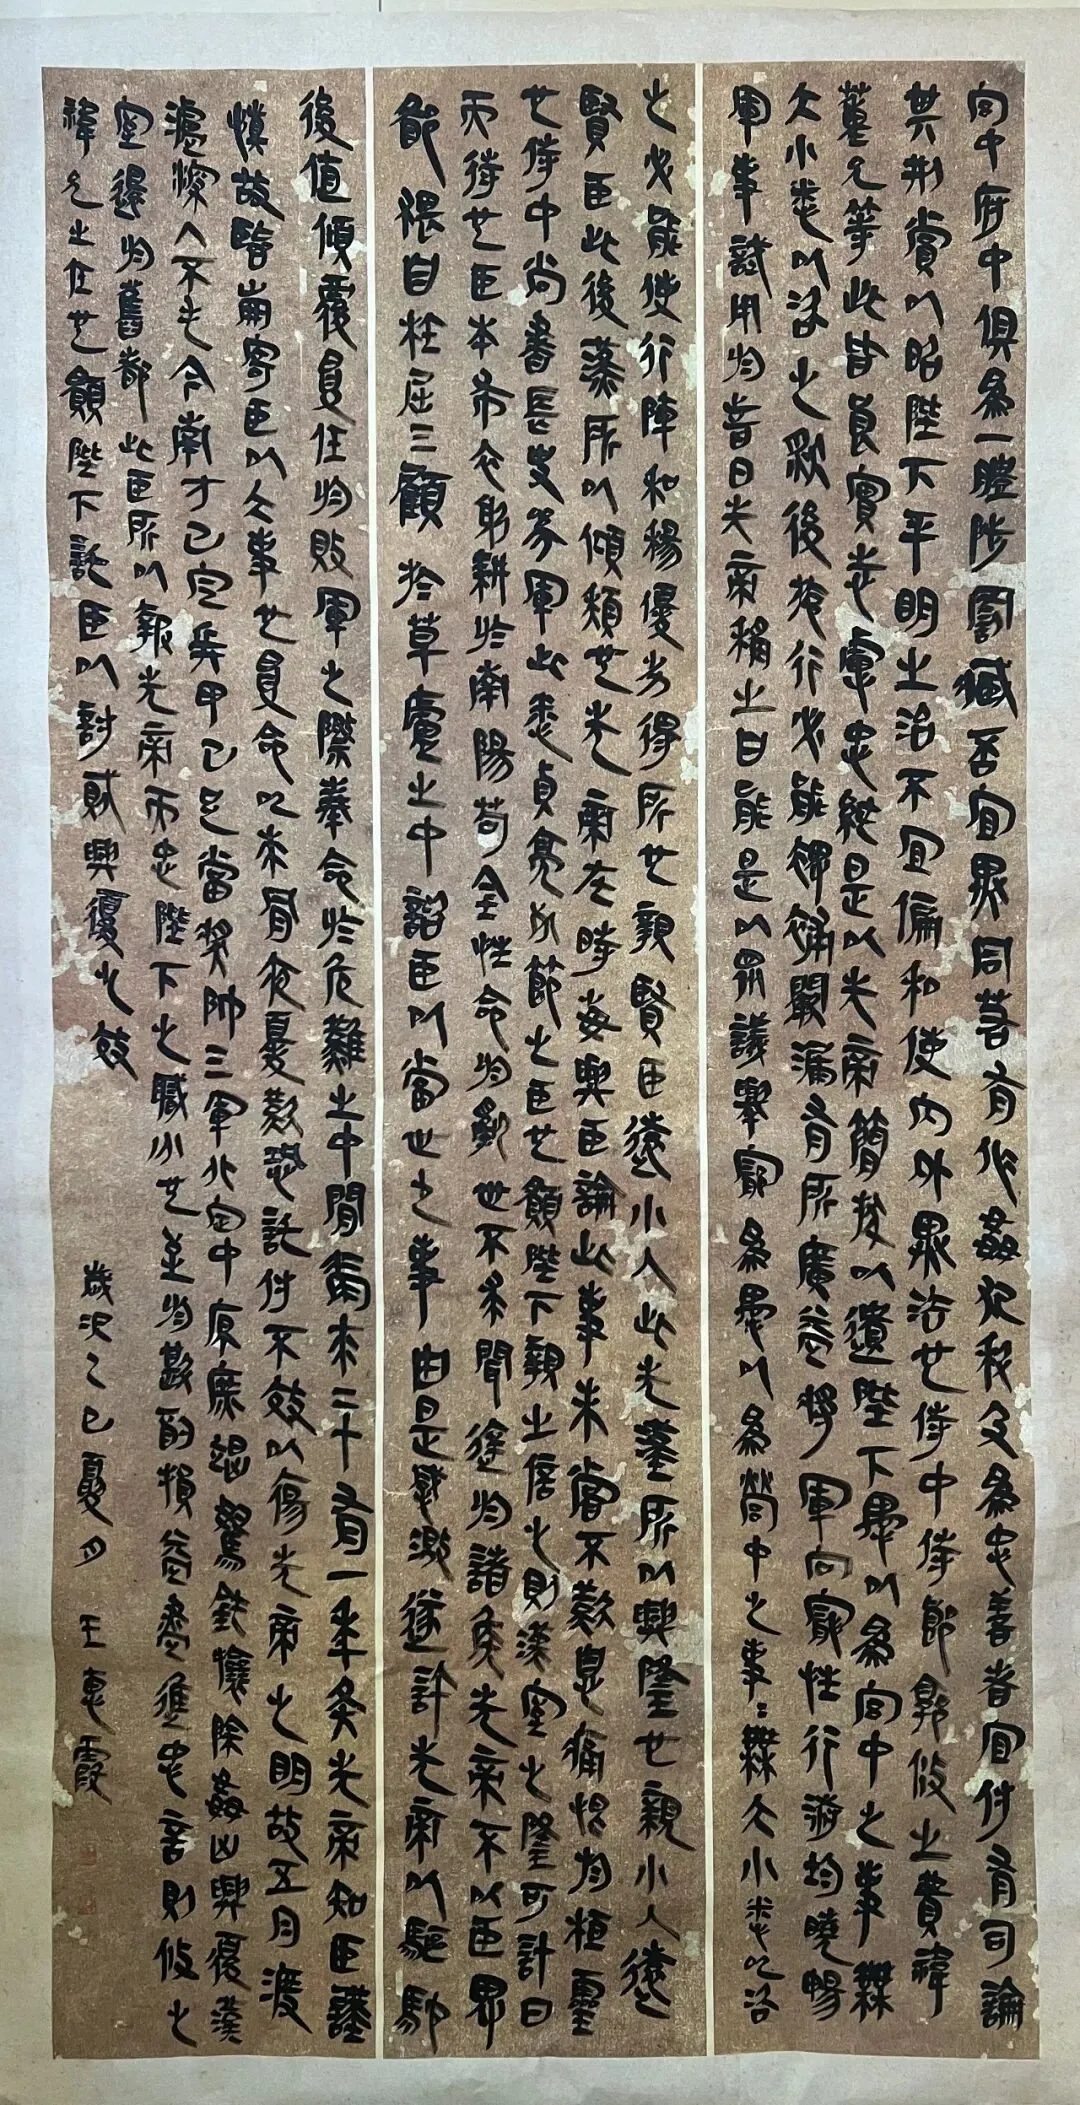 宮中府中俱為一體陟罰臧否宜異同若有作姦犯科及為忠善者宜付有司論
其刑賞以昭陛下平明之治不宜偏私使內外異法也侍中侍郎郭攸之費禕
董允等此皆良實志慮忠純是以先帝簡拔以遺陛下愚以為宮中之事無
大小悉以咨之然後施行必能裨補闕漏有所廣益將軍向寵性行淑均曉暢
軍事試用於昔日先帝稱之曰能是以眾議舉寵為愚以為營中之事〻無大小悉以咨
之必能使行陣和穆優劣得所也親賢臣遠小人此先漢所以興隆也親小人遠
賢臣此後漢所以傾頹也先帝在時每與臣論此事未嘗不歎息痛恨於桓靈
也侍中尚書長史參軍此悉貞亮死節之臣也願陛下親之信之則漢室之隆可計日
而待也臣本布衣躬耕於南陽苟全性命於亂世不求聞達於諸侯先帝不以臣卑
鄙猥自枉屈三顧於草廬之中諮臣以當世之事由是感激遂許先帝以驅馳
後值傾覆受任於敗軍之際奉命於危難之中間爾來二十有一年矣先帝知臣謹
慎故臨崩寄臣以大事也受命以來夙夜憂歎恐託付不效以傷先帝之明故五月渡
瀘深入不毛今南方已定兵甲已足當獎帥三軍北定中原庶竭駑鈍攘除姦凶興復漢
室還於舊都此臣所以報先帝而忠陛下之職分也至於斟酌損益盡進忠言則攸之
禕允之任也願陛下託臣以討賊興復之效
歲次乙巳夏月 王惠霞